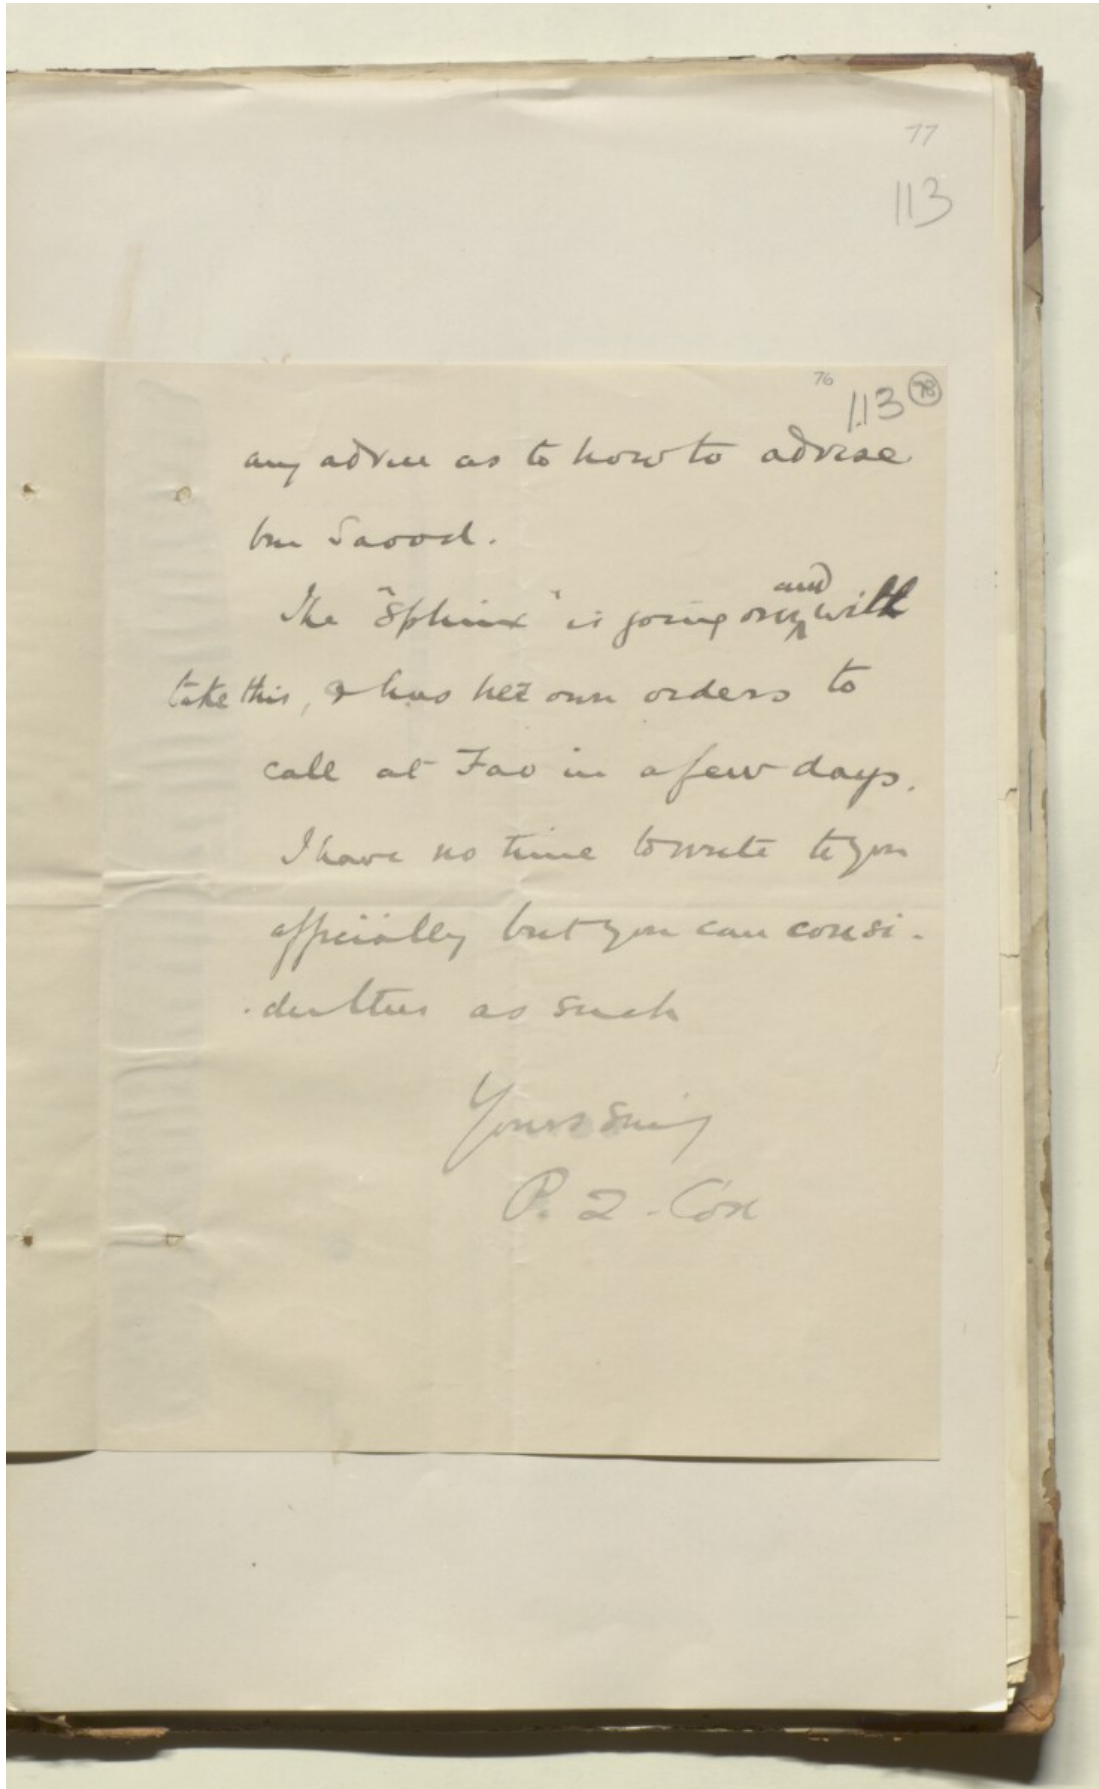 77
113
76
113 78
any advice as to how to advise
bin Saood.
The "Sphinx" is going on and will
take this, & has her own orders to
call at Fao in a few days.
I have no time to write to you
officially but you can consi-
-der this as such
Yours sincy
P. Z. Cox